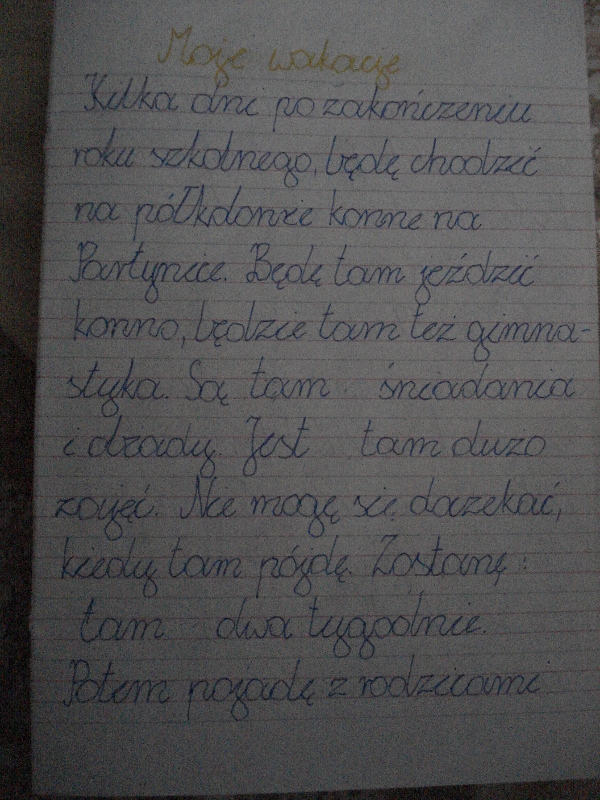 Moje wakacje
Kilka dni po zakończeniu
roku szkolnego, będę chodzić
na półkolonie konne na
Partynice. Będę tam jeździć
konno, będzie tam też gimna-
styka. Są tam śniadania
i obiady. Jest tam dużo
zajęć. Nie mogę się doczekać,
kiedy tam pójdę. Zostanę
tam dwa tygodnie.
Potem pojadę z rodzicami